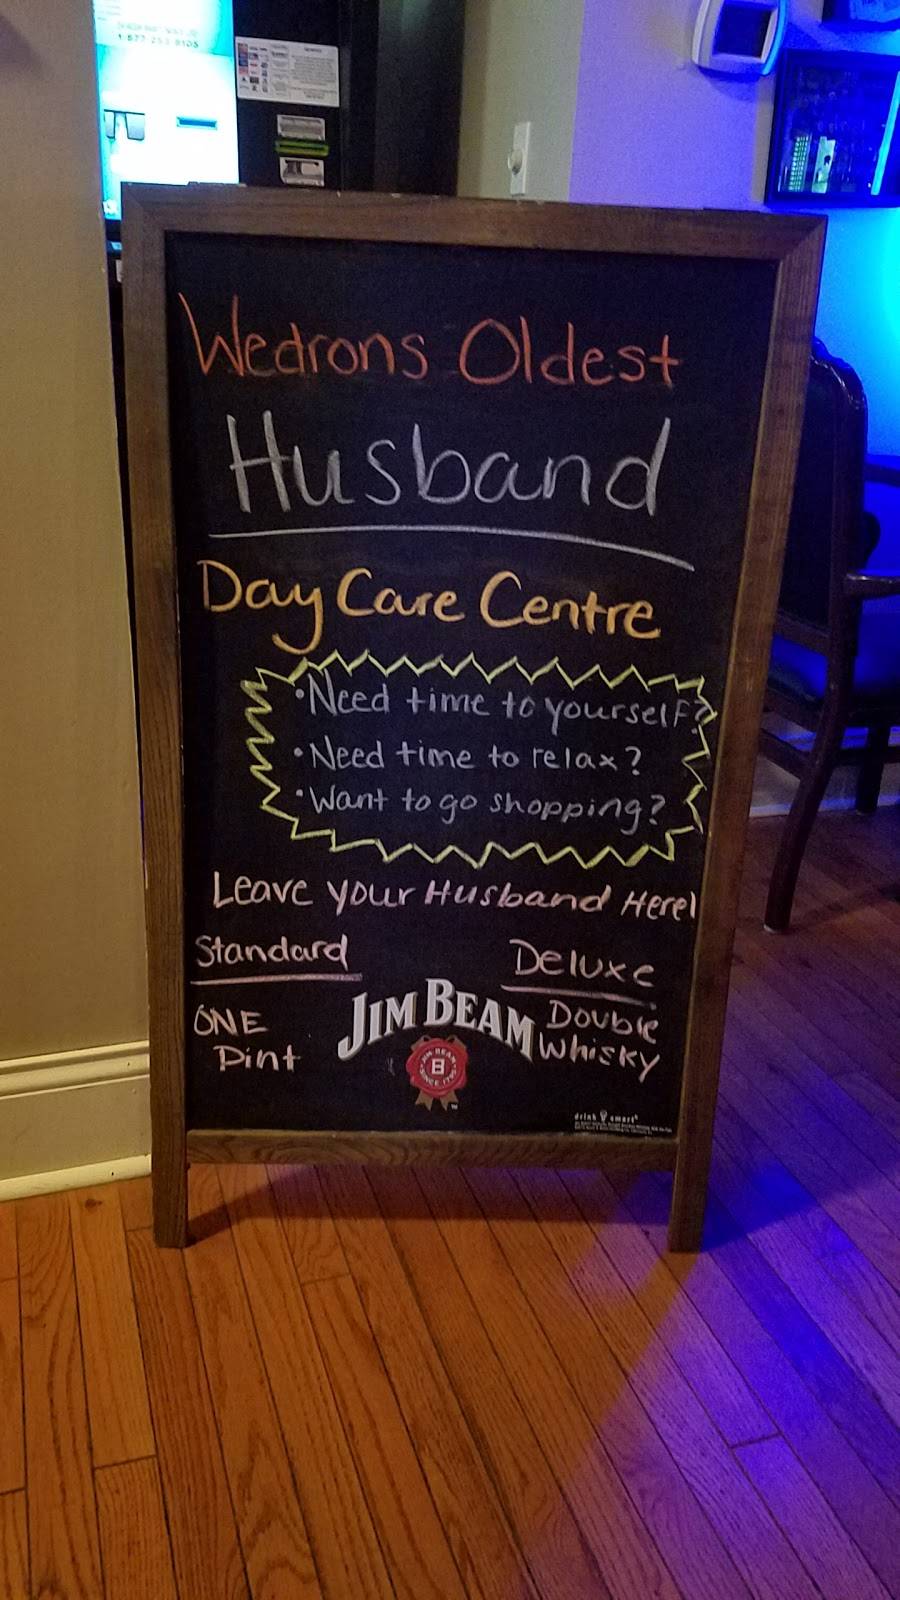 1-877-253-8105
Wedrons Oldest
Husband
Day Care Centre
•Need time to yourself?
•Need time to relax?
•Want to go shopping?
Leave your Husband Here!
Standard
Deluxe
ONE
Pint
JIM BEAM
B
Double
Whisky
drink smart